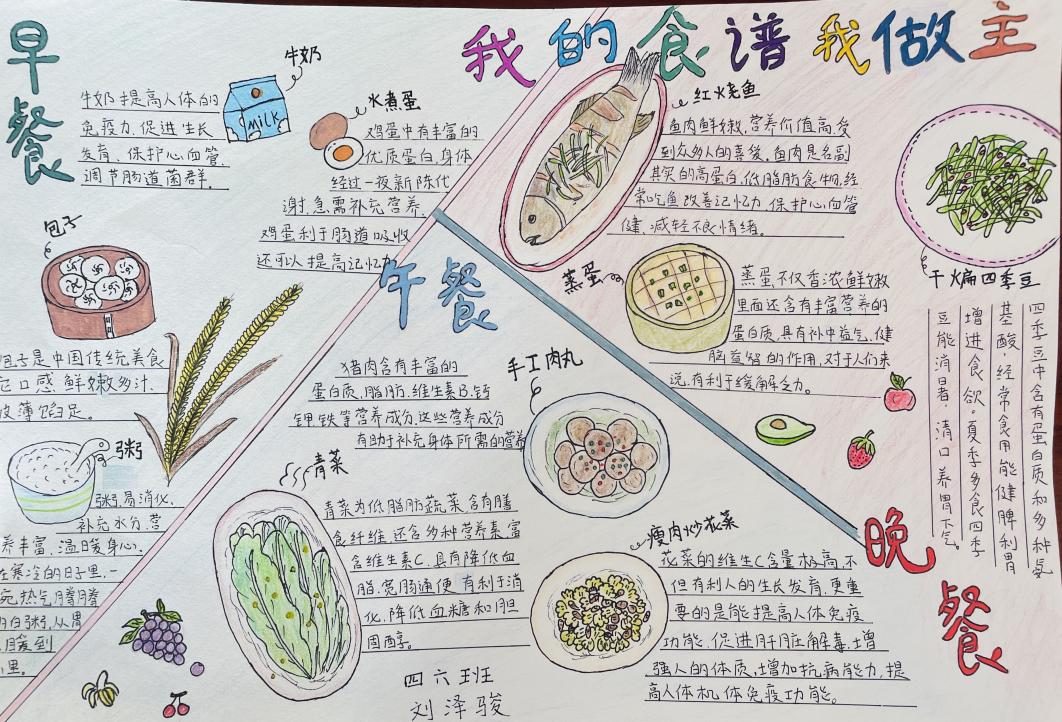 我的食谱我做主
早餐
牛奶
MILK
牛奶提高人体的
免疫力、促进生长
发育、保护心血管、
调节肠道菌群。
水煮蛋
鸡蛋中有丰富的
优质蛋白,身体
经过一夜新陈代
谢,急需补充营养,
鸡蛋利于肠道吸收
还可以提高记忆力
包子
包子是中国传统美食
它口感鲜嫩多汁、
皮薄馅足。
粥
粥易消化、
补充水分、营
养丰富、温暖身心。
在寒冷的日子里,一
碗热气腾腾
的白粥,从胃
暖到
里。
午餐
手工肉丸
猪肉含有丰富的
蛋白质、脂肪、维生素B、钙
钾、铁等营养成分,这些营养成分
有助于补充身体所需的营养
青菜
青菜为低脂肪蔬菜含有膳
食纤维,还含多种营养素,富
含维生素C,具有降低血
脂、宽肠通便,有利于消
化、降低血糖和胆
固醇。
瘦肉炒花菜
花菜的维生C含量极高,不
但有利人的生长发育,更重
要的是能提高人体免疫
功能,促进肝脏解毒,增
强人的体质,增加抗病能力,提
高人体机体免疫功能。
四六班
刘泽骏
晚餐
红烧鱼
鱼肉鲜嫩,营养价值高,受
到众多人的喜爱。鱼肉是名副
其实的高蛋白,低脂肪食物,经
常吃鱼改善记忆力、保护心血管
健、减轻不良情绪。
蒸蛋
蒸蛋不仅香浓鲜嫩
里面还含有丰富营养的
蛋白质,具有补中益气、健
脑益智的作用,对于人们来
说,有利于缓解乏力。
干煸四季豆
四季豆中含有蛋白质和多种氨
基酸,经常食用能健脾利胃
增进食欲。夏季多食四季
豆能消暑,清口养胃下气。